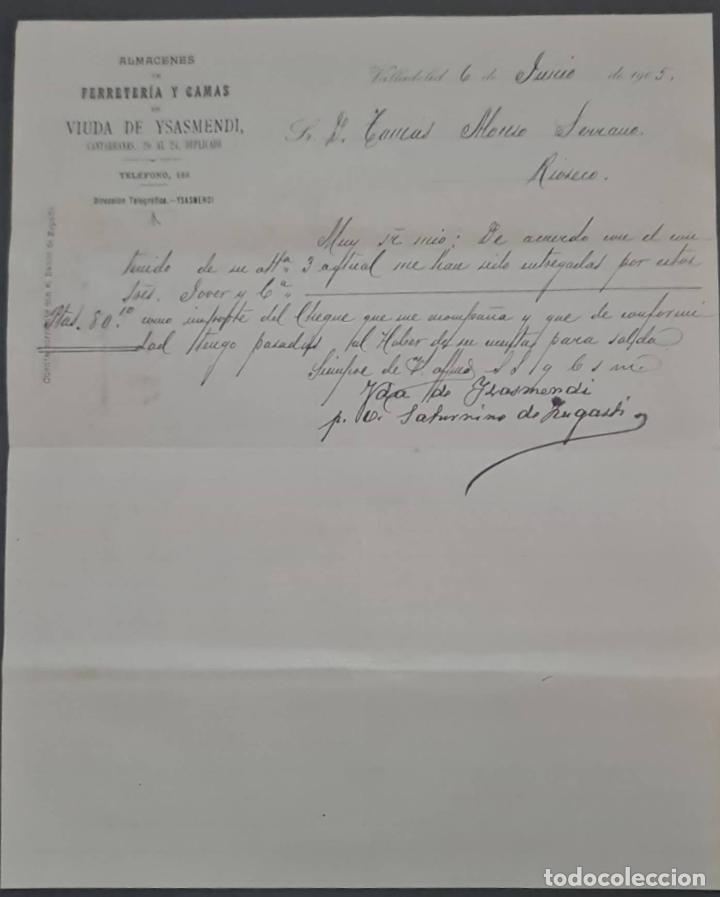 ALMACENES
DE
FERRETERÍA Y CAMAS
DE
VIUDA DE YSASMENDI,
CANTARRANAS, 20 AL 24, DUPLICADO
TELEFONO, 186
Dirección Telegráfica.—YSASMENDI
Cuenta corriente con el Banco de España
Valladolid 6 de Junio de 1905.
Sr. Dn. Tomás Alonso Serrano.
Rioseco.
Muy Sr. mío: De acuerdo con el con
tenido de su att.ª 3 actual me han sido entregadas por estos
Sres. Jover y C.ª
Ptas. 80.10 como importe del Cheque que me acompaña y que de conformi
dad tengo pasadas al Haber de su cuenta para saldo
Siempre de V. affmo. S S q b s m
Vda de Ysasmendi
p. o. Saturnino de Zugasti
todocoleccion